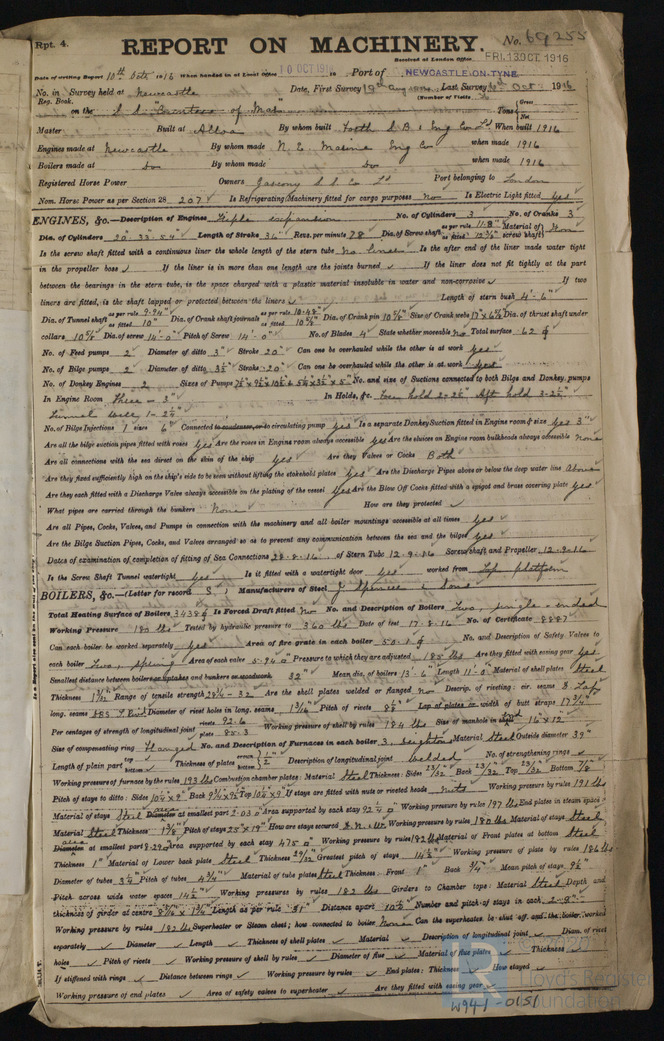 Rpt. 4.
REPORT ON MACHINERY.
No. 69255
Received at London Office FRI. 13 OCT 1916
Date of writing Report 10th Octr 1916 When handed in at Local Office 10 OCT 1916 to Port of NEWCASTLE-ON-TYNE
No. in Survey held at Newcastle Date, First Survey 19th Aug Last Survey Octr 1916
Reg. Book. (Number of Visits
on the S.S. "Countess of Mar" Tons Gross Net
Master Built at Alloa By whom built Forth S.B. & Eng Co Ld When built 1916
Engines made at Newcastle By whom made N.E. Marine Eng Co when made 1916
Boilers made at Do By whom made Do when made 1916
Registered Horse Power Owners Gascony S S Co Ld Port belonging to London
Nom. Horse Power as per Section 28 207 Is Refrigerating Machinery fitted for cargo purposes No Is Electric Light fitted Yes
ENGINES, &c.—Description of Engines Triple expansion No. of Cylinders 3 No. of Cranks 3
Dia. of Cylinders 20" 33" 54" Length of Stroke 36" Revs. per minute 78 Dia. of Screw shaft as per rule 11.8" as fitted Material of screw shaft Iron
Is the screw shaft fitted with a continuous liner the whole length of the stern tube No liners Is the after end of the liner made water tight
in the propeller boss ✓ If the liner is in more than one length are the joints burned ✓ If the liner does not fit tightly at the part
between the bearings in the stern tube, is the space charged with a plastic material insoluble in water and non-corrosive ✓ If two
liners are fitted, is the shaft lapped or protected between the liners ✓ Length of stern bush 4'-6"
Dia. of Tunnel shaft as per rule 9.94" as fitted 10" Dia. of Crank shaft journals as per rule 10.48" as fitted 10 5/8" Dia. of Crank pin 10 5/8" Size of Crank webs Dia. of thrust shaft under
collars 10 5/8" Dia. of screw 14'-0" Pitch of Screw 14'-0" No. of Blades 4 State whether moveable No Total surface 62
No. of Feed pumps 2 Diameter of ditto 3" Stroke 20" Can one be overhauled while the other is at work Yes
No. of Bilge pumps 2 Diameter of ditto 3 1/2" Stroke 20" Can one be overhauled while the other is at work Yes
No. of Donkey Engines 2 Sizes of Pumps No. and size of Suctions connected to both Bilge and Donkey pumps
In Engine Room Three - 3" In Holds, &c. Fore hold 2-2 1/2" Aft hold 3-2 1/2"
Tunnel well 1-2 1/2"
No. of Bilge Injections 1 sizes 6" Connected to condenser, or to circulating pump Yes Is a separate Donkey Suction fitted in Engine room & size Yes 3"
Are all the bilge suction pipes fitted with roses Yes Are the roses in Engine room always accessible Yes Are the sluices on Engine room bulkheads always accessible None
Are all connections with the sea direct on the skin of the ship Yes Are they Valves or Cocks Both
Are they fixed sufficiently high on the ship's side to be seen without lifting the stokehold plates Yes Are the Discharge Pipes above or below the deep water line Above
Are they each fitted with a Discharge Valve always accessible on the plating of the vessel Yes Are the Blow Off Cocks fitted with a spigot and brass covering plate Yes
What pipes are carried through the bunkers None How are they protected ✓
Are all Pipes, Cocks, Valves, and Pumps in connection with the machinery and all boiler mountings accessible at all times Yes
Are the Bilge Suction Pipes, Cocks, and Valves arranged so as to prevent any communication between the sea and the bilges Yes
Dates of examination of completion of fitting of Sea Connections 28-8-16 of Stern Tube 12-9-16 Screw shaft and Propeller 12-9-16
Is the Screw Shaft Tunnel watertight Yes Is it fitted with a watertight door Yes worked from Top platform
BOILERS, &c.—(Letter for record S) Manufacturers of Steel J Spencer & Sons
Total Heating Surface of Boilers 3438 Is Forced Draft fitted No No. and Description of Boilers Two, single-ended
Working Pressure 180 lbs Tested by hydraulic pressure to 360 lbs Date of test 17-8-16 No. of Certificate 8887
Can each boiler be worked separately Yes Area of fire grate in each boiler 50.1 No. and Description of Safety Valves to
each boiler Two, spring Area of each valve 5.94 Pressure to which they are adjusted 185 lbs Are they fitted with easing gear Yes
Smallest distance between boilers or uptakes and bunkers or woodwork 32" Mean dia. of boilers 13'-6" Length 11'-0" Material of shell plates Steel
Thickness 1 1/32" Range of tensile strength 28 1/2 - 32 Are the shell plates welded or flanged No Descrip. of riveting: cir. seams D. Lap
long. seams DBS T Rivd Diameter of rivet holes in long. seams 1 3/16" Pitch of rivets 8 1/8" Lap of plates or width of butt straps 17 3/4"
Per centages of strength of longitudinal joint rivets 92.6 plate 85.3 Working pressure of shell by rules 184 lbs Size of manhole in shell End 16"x12"
Size of compensating ring Flanged No. and Description of Furnaces in each boiler 3, Deighton Material Steel Outside diameter 39"
Length of plain part top bottom Thickness of plates crown bottom 1/2" Description of longitudinal joint Welded No. of strengthening rings ✓
Working pressure of furnace by the rules 193 lbs Combustion chamber plates: Material Steel Thickness: Sides 23/32" Back 23/32" Top 23/32" Bottom 7/8"
Pitch of stays to ditto: Sides Back Top If stays are fitted with nuts or riveted heads Nuts Working pressure by rules 191 lbs
Material of stays Steel Area Diameter at smallest part 2.03 Area supported by each stay 92.4 Working pressure by rules 197 lbs End plates in steam space:
Material Steel Thickness 1 1/8" Pitch of stays 25"x19" How are stays secured D.N.&W. Working pressure by rules 180 lbs Material of stays Steel
area Diameter at smallest part 8.29 Area supported by each stay 475 Working pressure by rules 182 lbs Material of Front plates at bottom Steel
Thickness 1" Material of Lower back plate Steel Thickness 29/32" Greatest pitch of stays 14 1/2" Working pressure of plate by rules 186 lbs
Diameter of tubes 3 1/4" Pitch of tubes 4 3/4" Material of tube plates Steel Thickness: Front 1" Back 3/4" Mean pitch of stays 9 1/2"
Pitch across wide water spaces 14 1/2" Working pressures by rules 182 lbs Girders to Chamber tops: Material Steel Depth and
thickness of girder at centre Length as per rule 31" Distance apart 10 1/2" Number and pitch of stays in each 2-9"
Working pressure by rules 192 lbs Superheater or Steam chest; how connected to boiler None Can the superheater be shut off and the boiler worked
separately ✓ Diameter ✓ Length ✓ Thickness of shell plates ✓ Material ✓ Description of longitudinal joint ✓ Diam. of rivet
holes ✓ Pitch of rivets ✓ Working pressure of shell by rules ✓ Diameter of flue ✓ Material of flue plates ✓ Thickness ✓
If stiffened with rings ✓ Distance between rings ✓ Working pressure by rules ✓ End plates: Thickness ✓ How stayed ✓
Working pressure of end plates ✓ Area of safety valves to superheater ✓ Are they fitted with easing gear ✓
W941-0151
LR Lloyd's Register
Foundation